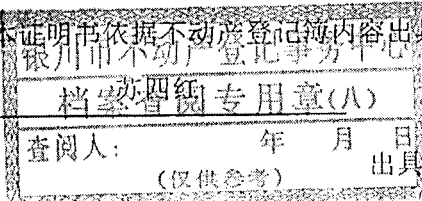 本证明书依据不动产登记簿内容出具
银川市不动产登记事务中心
苏四红
档案查阅专用章(八)
查阅人: 年 月 日
出具
(仅供参考)